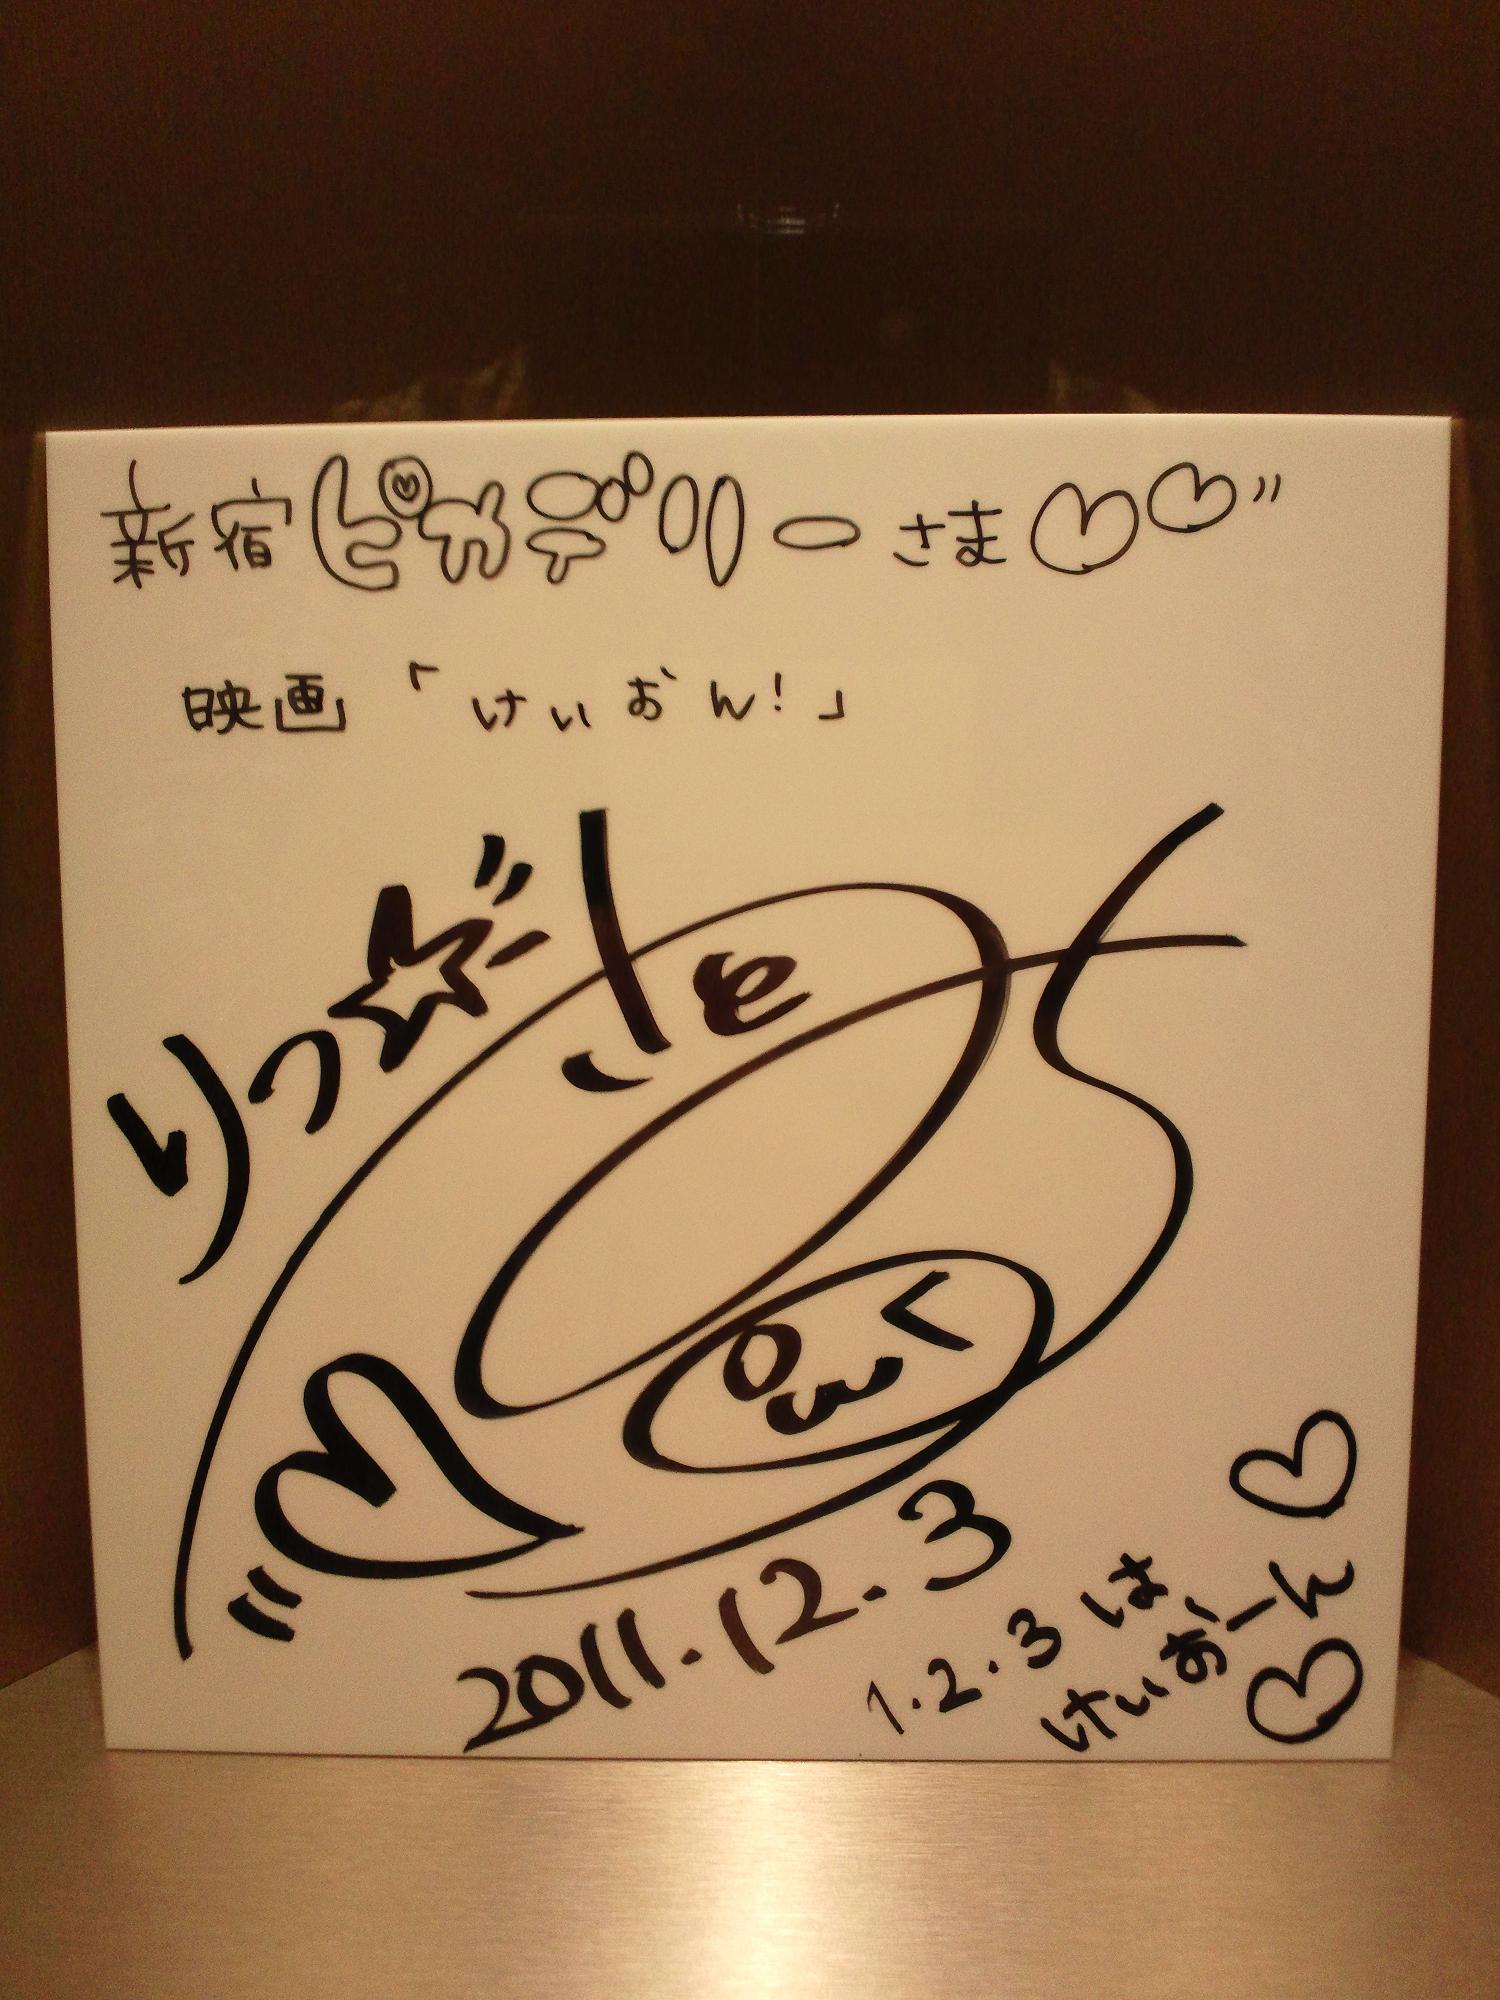 新宿ピカデリーさま
映画「けいおん!」
りっ
さとさ
2011.12.3
1.2.3は
けいおーん